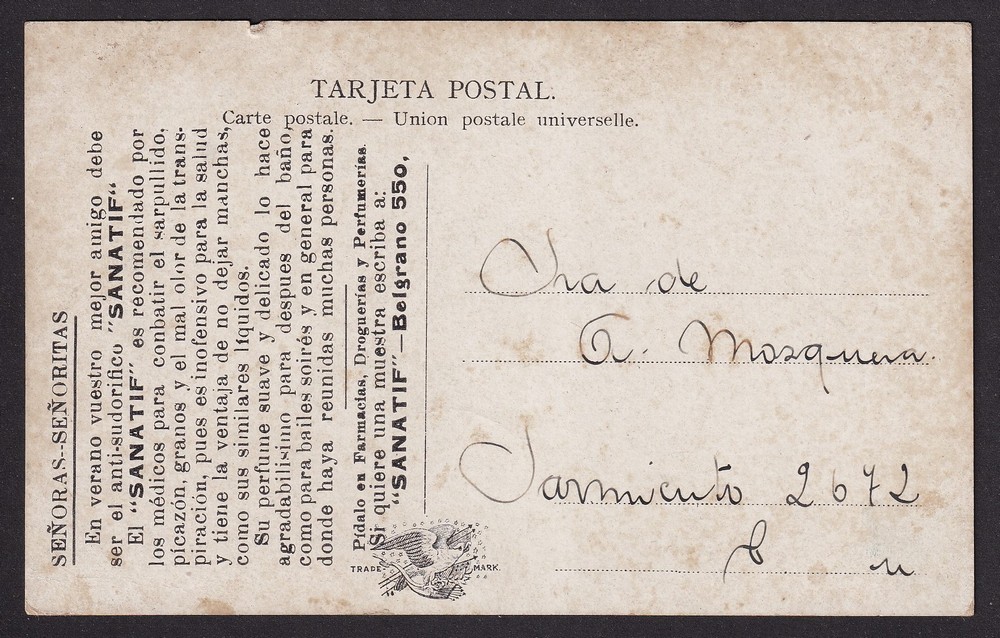 TARJETA POSTAL.
Carte postale. — Union postale universelle.
SEÑORAS--SEÑORITAS
En verano vuestro mejor amigo debe
ser el anti-sudorífico "SANATIF"
El "SANATIF" es recomendado por
los médicos para conbatir el sarpullido,
picazón, granos y el mal olor de la trans-
piración, pues es inofensivo para la salud
y tiene la ventaja de no dejar manchas,
como sus similares líquidos.
Su perfume suave y delicado lo hace
agradabilisimo para despues del baño,
como para bailes soirés y en general para
donde haya reunidas muchas personas.
Pídalo en Farmacias, Droguerias y Perfumerías.
Si quiere una muestra escriba a:
"SANATIF"—Belgrano 550,
TRADE MARK.
Sra de
A. Mosquera.
Sarmiento 2672